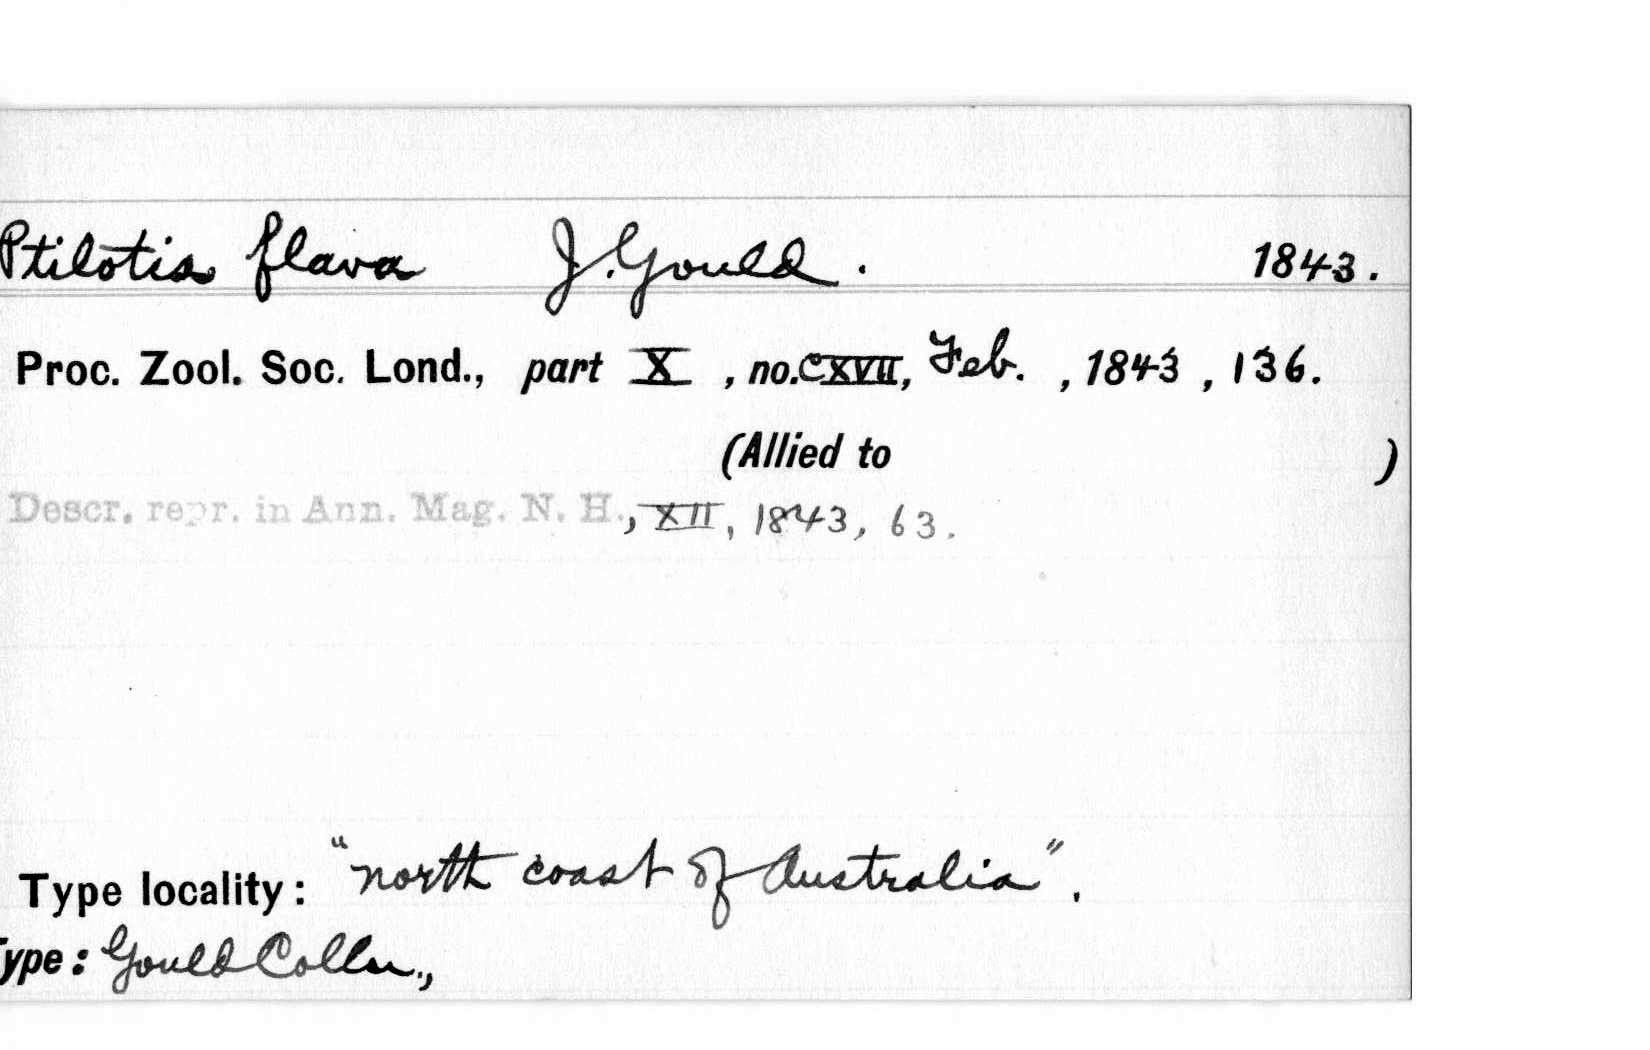 Ptilotis flava J. Gould. 1843.
Proc. Zool. Soc. Lond., part X, no. CXVII, Feb., 1843, 136.
(Allied to )
Descr. repr. in Ann. Mag. N. H., XII, 1843, 63.
Type locality: "north coast of Australia".
Type: Gould Colln.,